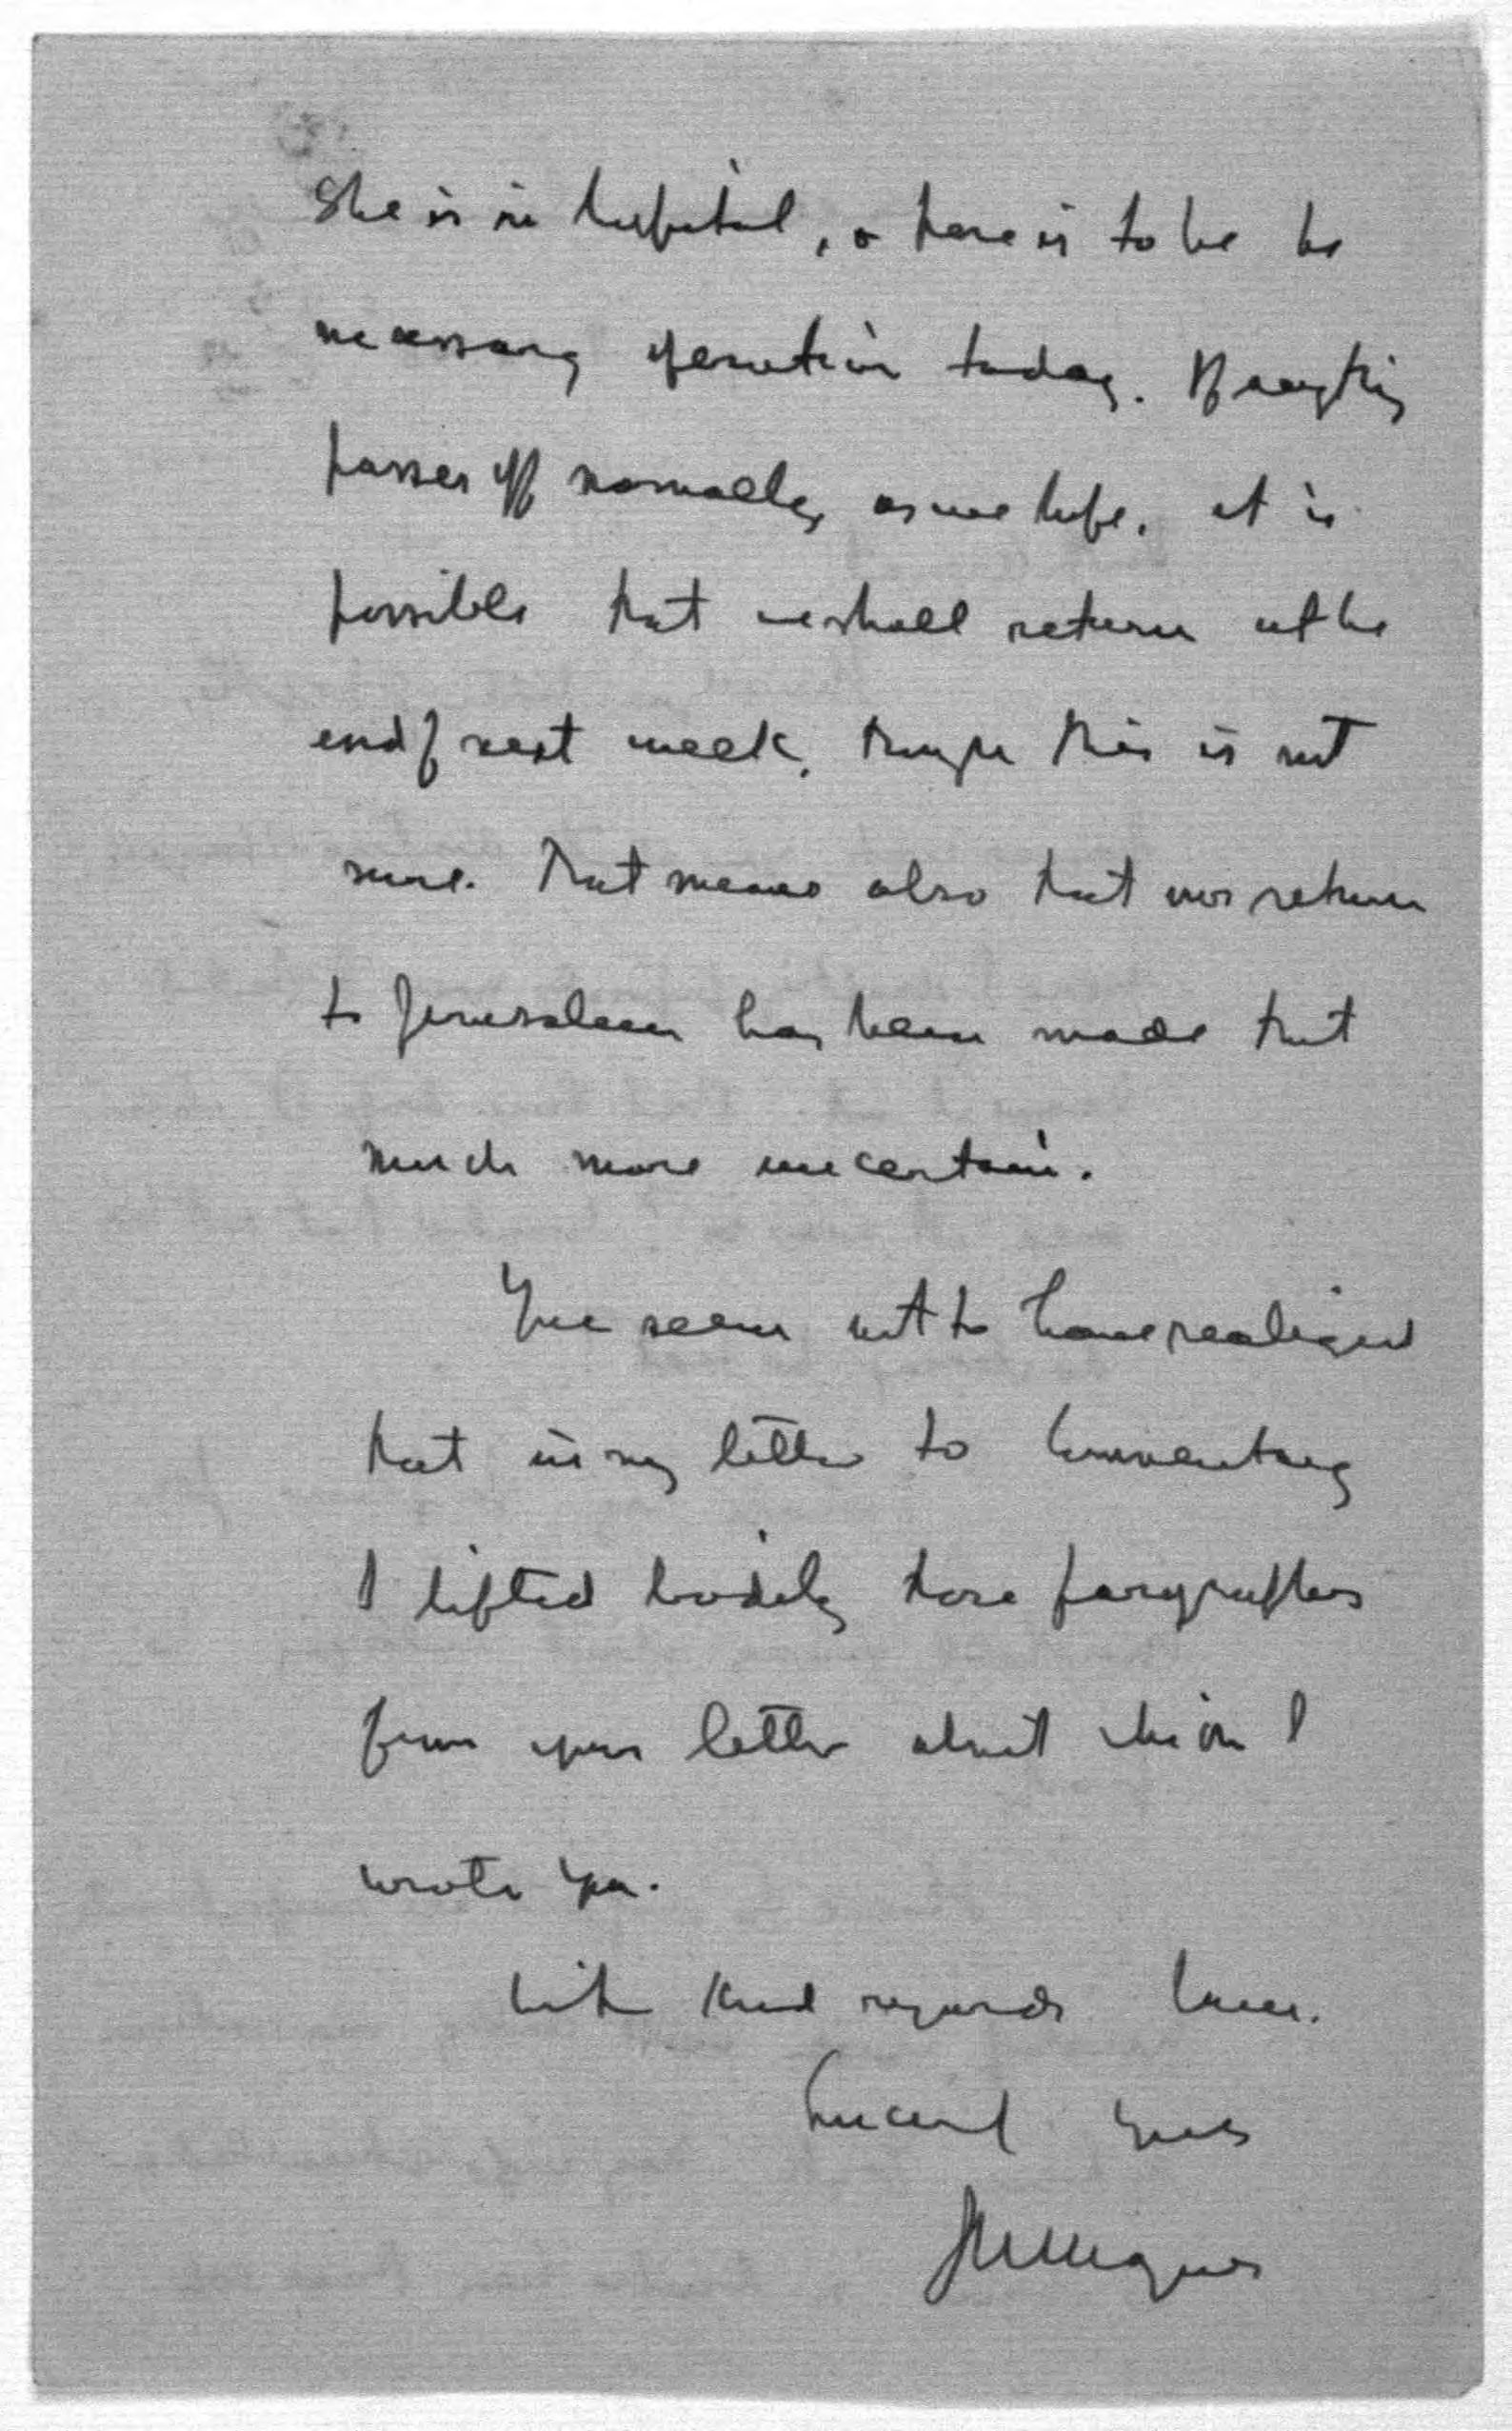 She is in hospital, & there is to be the
necessary operation today. If everything
passes off normally, as we hope, it is
possible that we shall return at the
end of next week, though this is not
sure. That means also that our return
to Jerusalem has been made that
much more uncertain.
You seem not to have realized
that in my letter to Commentary
I lifted bodily those paragraphs
from your letter about which I
wrote you.
With kind regards
Sincerely yours
JLMagnes